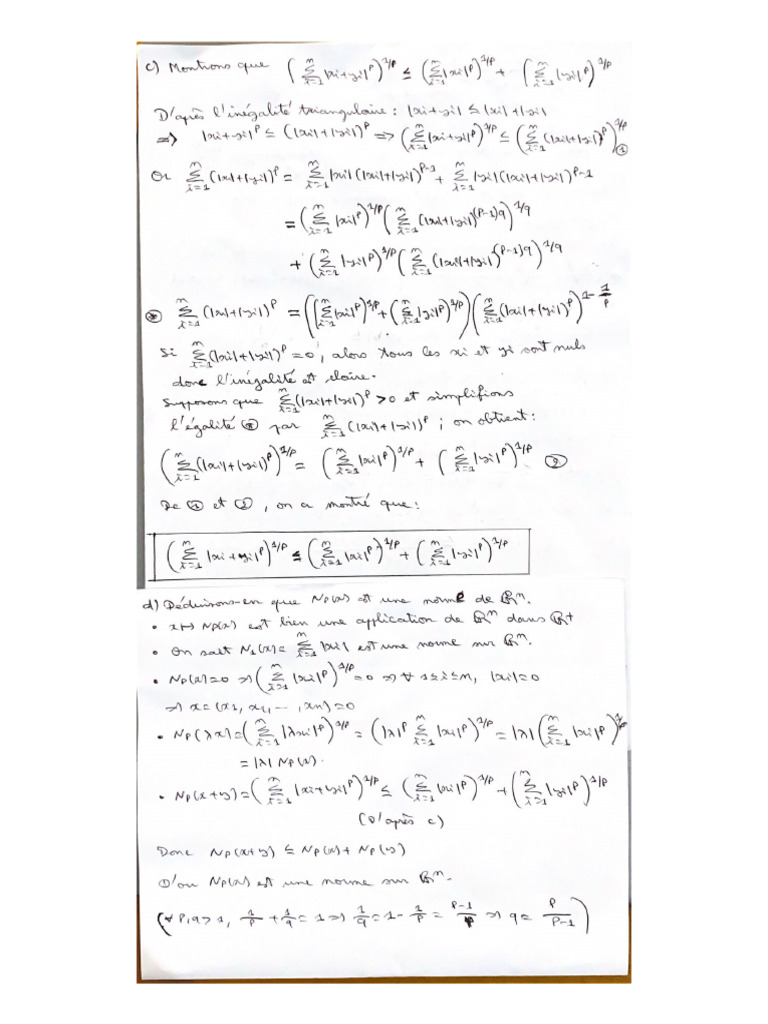 c) Montrons que (∑_{i=1}^{n} |xi+yi|^p)^{1/p} ≤ (∑_{i=1}^{n} |xi|^p)^{1/p} + (∑_{i=1}^{n} |yi|^p)^{1/p}
D'après l'inégalité triangulaire : |xi+yi| ≤ |xi|+|yi|
=> |xi+yi|^p ≤ (|xi|+|yi|)^p => (∑_{i=1}^{n} |xi+yi|^p)^{1/p} ≤ (∑_{i=1}^{n} (|xi|+|yi|)^p)^{1/p} ①
Or ∑_{i=1}^{n} (|xi|+|yi|)^p = ∑_{i=1}^{n} |xi|(|xi|+|yi|)^{p-1} + ∑_{i=1}^{n} |yi|(|xi|+|yi|)^{p-1}
= (∑_{i=1}^{n} |xi|^p)^{1/p} (∑_{i=1}^{n} (|xi|+|yi|)^{(p-1)q})^{1/q}
+ (∑_{i=1}^{n} |yi|^p)^{1/p} (∑_{i=1}^{n} (|xi|+|yi|)^{(p-1)q})^{1/q}
⊛ ∑_{i=1}^{n} (|xi|+|yi|)^p = ((∑_{i=1}^{n} |xi|^p)^{1/p} + (∑_{i=1}^{n} |yi|^p)^{1/p}) (∑_{i=1}^{n} (|xi|+|yi|)^p)^{1-1/p}
Si ∑_{i=1}^{n} (|xi|+|yi|)^p = 0, alors tous les xi et yi sont nuls
donc l'inégalité est claire.
Supposons que ∑_{i=1}^{n} (|xi|+|yi|)^p > 0 et simplifions
l'égalité ⊛ par ∑_{i=1}^{n} (|xi|+|yi|)^p ; on obtient :
(∑_{i=1}^{n} (|xi|+|yi|)^p)^{1/p} = (∑_{i=1}^{n} |xi|^p)^{1/p} + (∑_{i=1}^{n} |yi|^p)^{1/p} ②
De ① et ②, on a montré que :
(∑_{i=1}^{n} |xi+yi|^p)^{1/p} ≤ (∑_{i=1}^{n} |xi|^p)^{1/p} + (∑_{i=1}^{n} |yi|^p)^{1/p}
d) Déduisons-en que Np(x) est une norme de ℝ^n.
• x↦Np(x) est bien une application de ℝ^n dans ℝ+
• On sait N1(x) = ∑_{i=1}^{n} |xi| est une norme sur ℝ^n.
• Np(x)=0 => (∑_{i=1}^{n} |xi|^p)^{1/p} = 0 => ∀ 1≤i≤n, |xi|=0
=> x=(x1, x2, ..., xn)=0
• Np(λx) = (∑_{i=1}^{n} |λxi|^p)^{1/p} = (|λ|^p ∑_{i=1}^{n} |xi|^p)^{1/p} = |λ| (∑_{i=1}^{n} |xi|^p)^{1/p}
= |λ| Np(x).
• Np(x+y) = (∑_{i=1}^{n} |xi+yi|^p)^{1/p} ≤ (∑_{i=1}^{n} |xi|^p)^{1/p} + (∑_{i=1}^{n} |yi|^p)^{1/p}
(D'après c)
Donc Np(x+y) ≤ Np(x) + Np(y)
D'où Np(x) est une norme sur ℝ^n.
(∀ p,q > 1, 1/p + 1/q = 1 => 1/q = 1 - 1/p = (p-1)/p => q = p/(p-1))